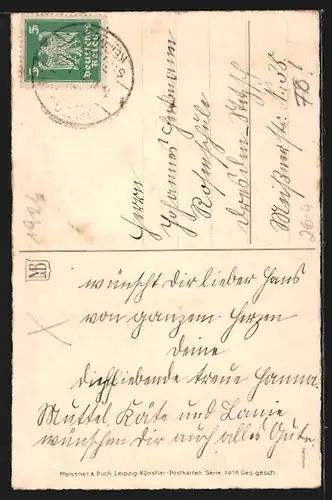 5 Deutsches Reich 5
Herrn
Johannes
Rosenschule
Dresden-
Meißnerstr.
78.
1926
26-4
wünscht Dir lieber Hans
von ganzem Herzen
Deine
Dichliebende treue Hanna.
Muttel, Käte und
wünschen Dir auch alles Gute.
Meissner & Buch, Leipzig. Künstler-Postkarten Serie Ges. gesch.